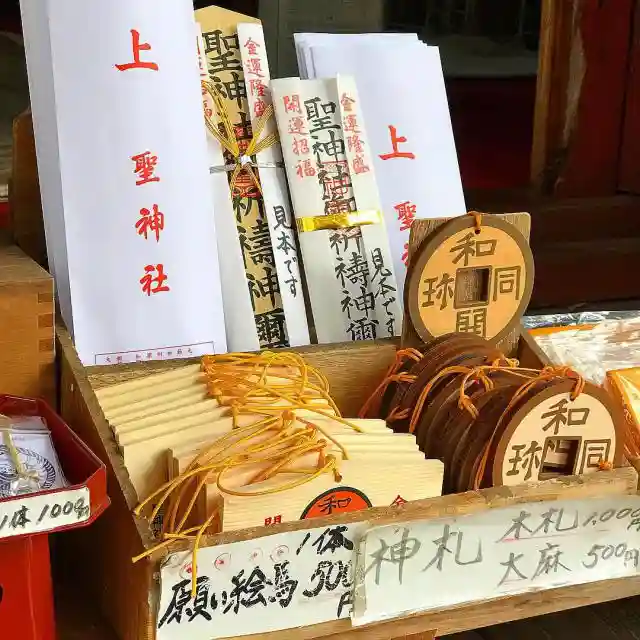 上
聖
神
社
聖神社
祈禱神爾
金運隆盛
見本です
開運招福
聖神社
祈禱神爾
金運隆盛
見本です
上
聖
和
同
開
珎
和
同
珎
和
開
1体
願い絵馬 500円
神札
木札 1,000円
大麻 500円
1体 100円